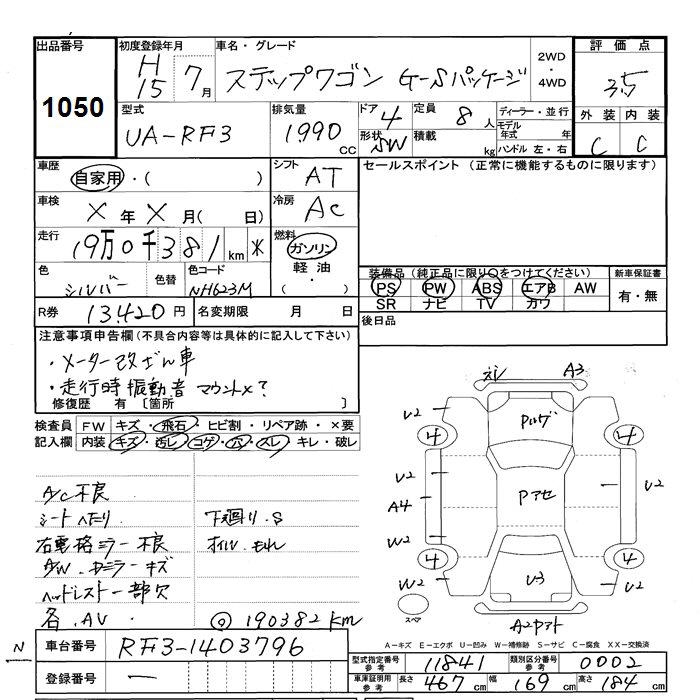 出品番号 初度登録年月 車名・グレード 2WD ・ 4WD 評価点
1050 H15 7月 ステップワゴン G-Sパッケージ 3.5
型式 排気量 ドア 4 定員 8人 ディーラー・並行 外装 内装
UA-RF3 1990cc 形状 SW 積載 kg モデル年式 年 C C
ハンドル 左・右
車歴 自家用・( ) シフト AT セールスポイント (正常に機能するものに限ります)
車検 X年X月( 日) 冷房 AC
走行 19万0千381km * 燃料 ガソリン・軽油・( )
色 シルバー 色替 色コード NH623M
装備品 (純正品に限り○をつけてください) 新車保証書
PS PW ABS エアB AW 有・無
SR ナビ TV カワ
R券 13420円 名変期限 月 日 後日品
注意事項申告欄 (不具合内容等は具体的に記入して下さい)
・メーター改ざん車
・走行時振動音 マウント×?
修復歴 有 [箇所 ]
検査員記入欄 FW キズ・飛石・ヒビ割・リペア跡・×要
内装 キズ・汚レ・コゲ・穴・スレ・キレ・破レ
A/C不良
シートヘたり. 下廻り.S
右電格ミラー不良 オイル.もれ
A/W.ドミラーキズ
ヘッドレスト一部欠
各.AV. @ 190382km
ズレ A3
U2 Pルグ
4 4
U2 Pアセ U2 U2
A4
W2 W2
4 4
W2 U3 U2
スペア A2Pアト
A−キズ E−エクボ U−凹み W−補修跡 S−サビ C−腐食 XX−交換済
N 車台番号 RF3-1403796
登録番号 −
型式指定番号 参考 11841 類別区分番号 参考 0002
車庫証明用 参考 長さ 467cm 幅 169cm 高さ 184cm